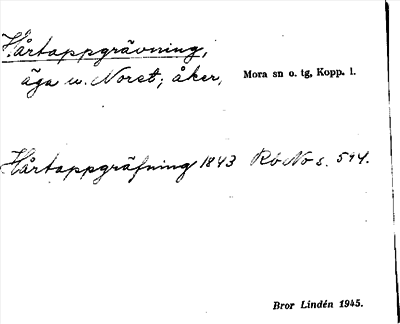 Hårtappgrävning,
äga u. Noret; åker, Mora sn o. tg, Kopp. l.
Hårtappgräfning 1843 RöNo s. 594.
Bror Lindén 1945.